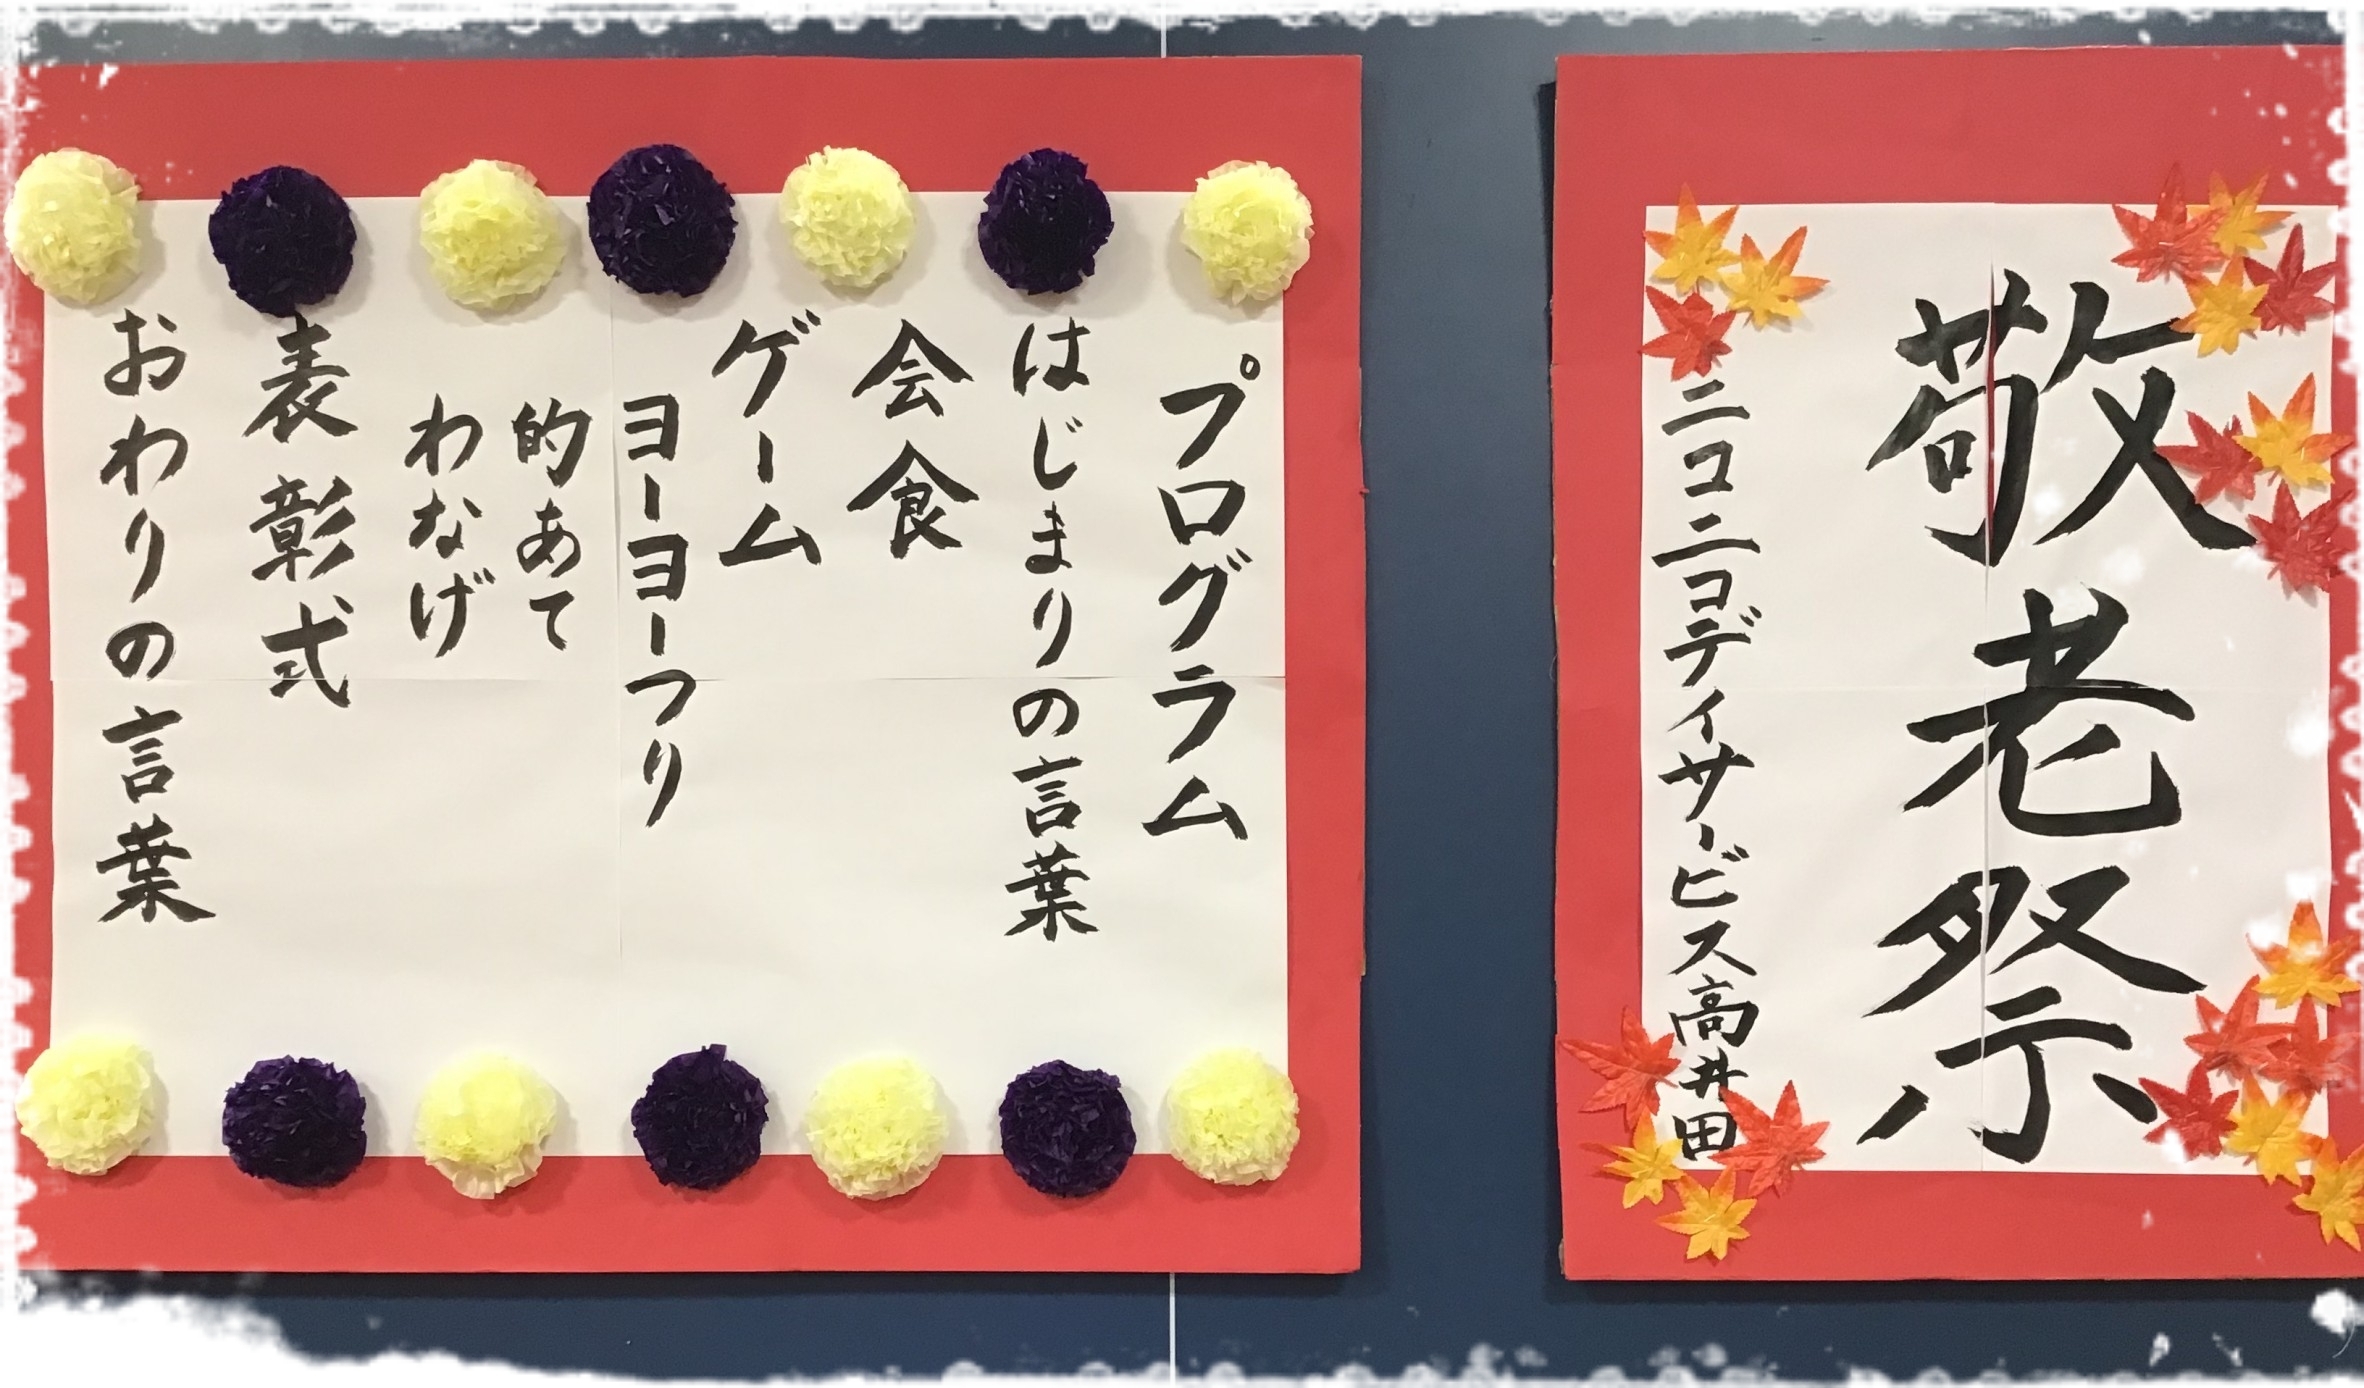 敬老祭
ニコニコデイサービス高井田
プログラム
はじまりの言葉
会食
ゲーム
ヨーヨーつり
的あて
わなげ
表彰式
おわりの言葉